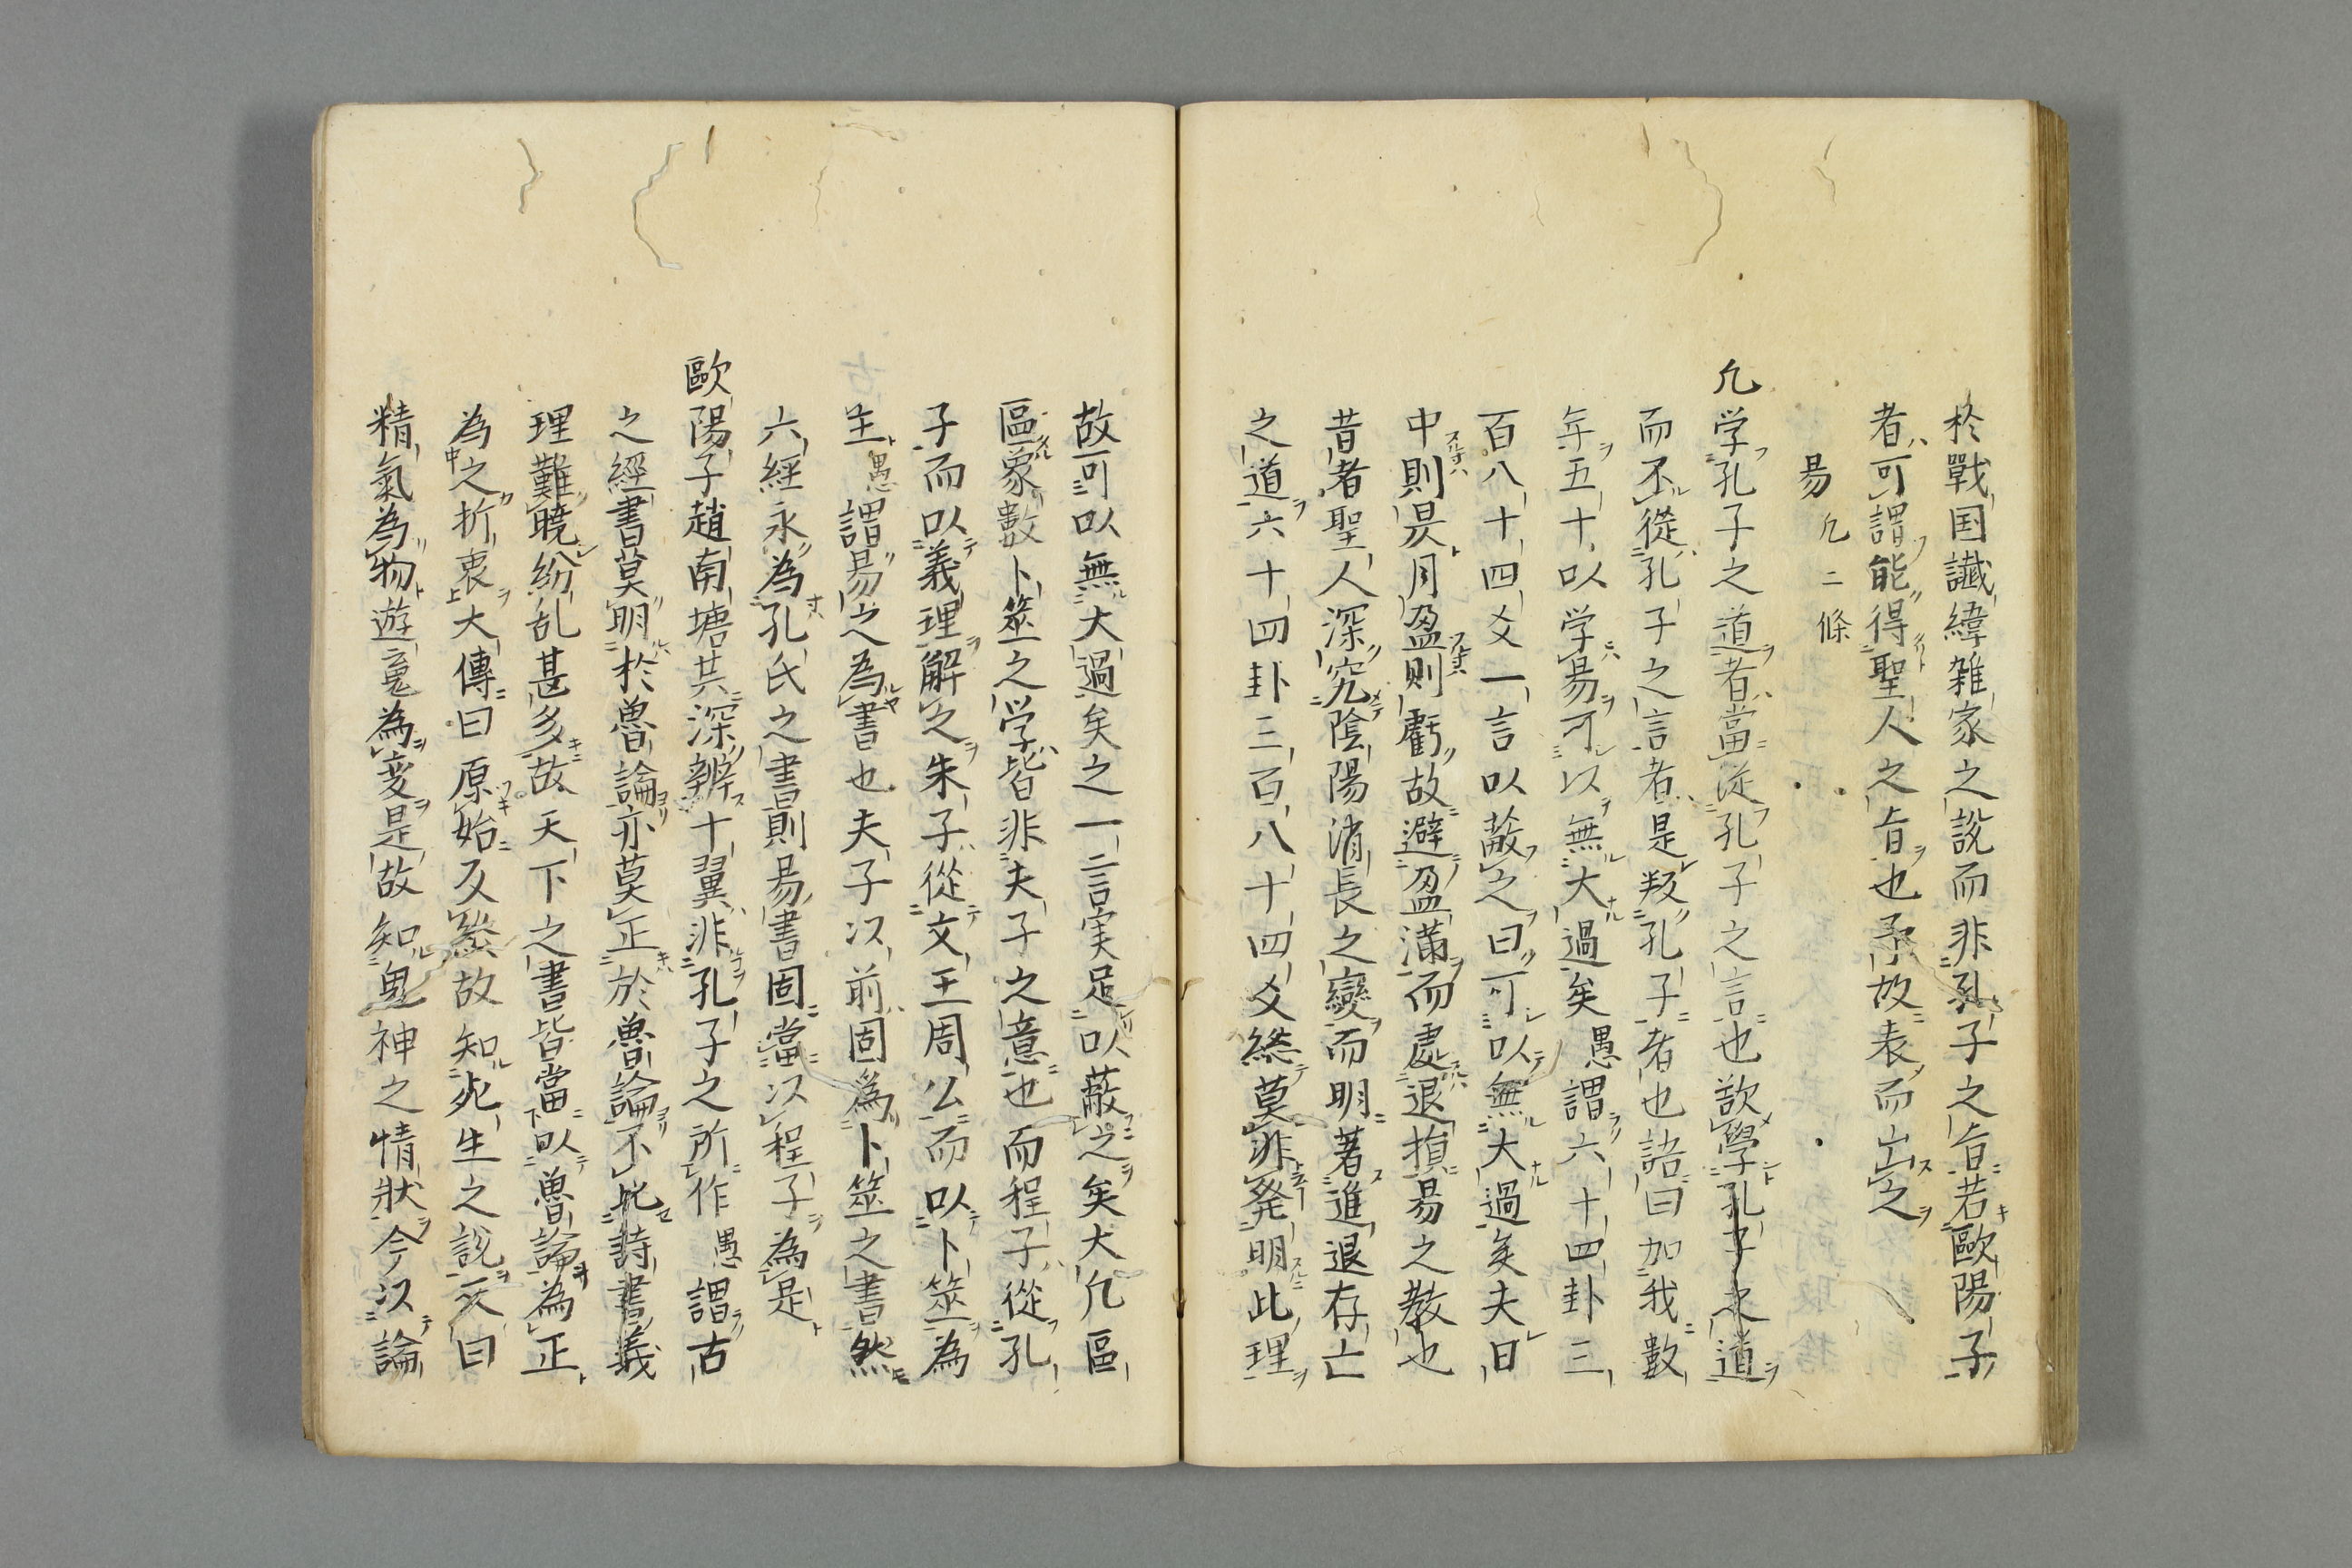 於戰国讖緯雑家之說而非孔子之旨若歐陽子
者可謂能得聖人之旨也予故表而出之
易 凢二條
凢学孔子之道者當従孔子之言也欲學孔子之道
而不從孔子之言者是叛孔子者也語曰加我數
年五十以学易可以無大過矣愚謂六十四卦三
百八十四爻一言以蔽之曰可以無大過矣夫日
中則昃月盈則虧故避盈滿而處退損易之教也
昔者聖人深究陰陽消長之變而明著進退存亡
之道六十四卦三百八十四爻緫莫非発明此理
故可以無大過矣之一言実足以蔽之矣大凢區
區象數卜筮之学皆非夫子之意也而程子從孔
子而以義理解之朱子從文王周公而以卜筮為
主愚謂易之為書也夫子以前固爲卜筮之書然
六經永為孔氏之書則易書固當以程子為是
歐陽子趙南塘共深辨十翼非孔子之所作愚謂古
之經書莫明於魯論亦莫正於魯論不比詩書義
理難曉紛乱甚多故天下之書皆當以魯論為正
為之折衷大傳曰原始及終故知死生之說又曰
精氣為物遊䰟為変是故知鬼神之情狀今以論